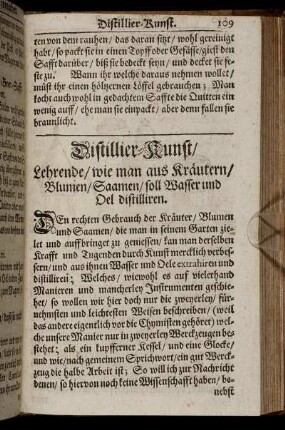 Distillier-Kunst. 169
ten von dem rauhen / das daran sitzt / wohl gereinigt
hat / so packt sie in einen Topff oder Gefässe / giest den
Safft darüber / biß sie bedeckt seyn / und decket sie fe-
ste zu. Wann ihr welche daraus nehmen wollet /
müst ihr einen höltzernen Löffel gebrauchen; Man
kocht auch wohl in gedachtem Saffte die Quitten ein
wenig auff / ehe man sie einpackt / aber denn fallen sie
braunlicht.
Distillier-Kunst /
Lehrende / wie man aus Kräutern /
Blumen / Saamen / soll Wasser und
Oel distilliren.
DEn rechten Gebrauch der Kräuter / Blumen
und Saamen / die man in seinem Garten zie-
let und auffbringet zu geniessen / kan man derselben
Krafft und Tugenden durch Kunst mercklich verbes-
sern / und aus ihnen Wasser und Oele extrahiren und
distilliren; Welches / wiewohl es auf vielerhand
Manieren und mancherley Instrumenten geschie-
het / so wollen wir hier doch nur die zweyerley / für-
nehmsten und leichtesten Weisen beschreiben / (weil
das andere eigentlich vor die Chymisten gehöret) wel-
che unsere Manier nur in zweyerley Werckzeugen be-
stehet; als ein kupfferner Kessel / und eine Glocke /
und wie / nach gemeinem Sprichwort / ein gut Werck-
zeug die halbe Arbeit ist; So will ich zur Nachricht
denen / so hiervon noch keine Wissenschafft haben / be-
nebst